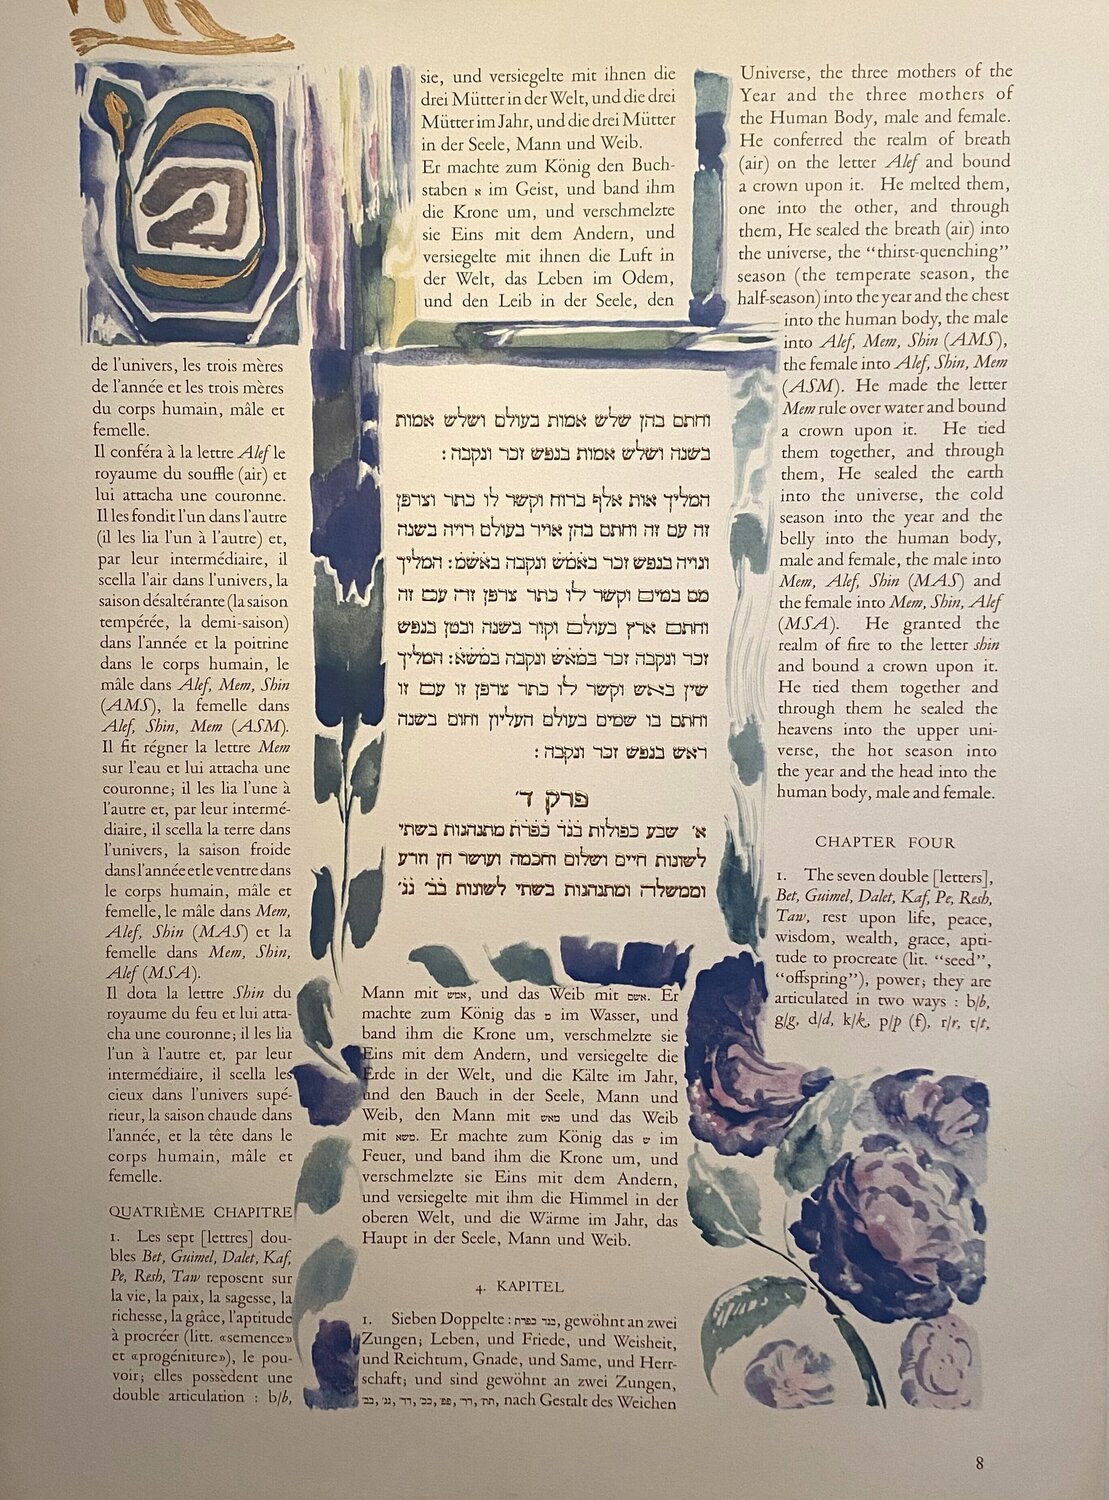 de l'univers, les trois mères
de l'année et les trois mères
du corps humain, mâle et
femelle.
Il conféra à la lettre Alef le
royaume du souffle (air) et
lui attacha une couronne.
Il les fondit l'un dans l'autre
(il les lia l'un à l'autre) et,
par leur intermédiaire, il
scella l'air dans l'univers, la
saison désaltérante (la saison
tempérée, la demi-saison)
dans l'année et la poitrine
dans le corps humain, le
mâle dans Alef, Mem, Shin
(AMS), la femelle dans
Alef, Shin, Mem (ASM).
Il fit régner la lettre Mem
sur l'eau et lui attacha une
couronne; il les lia l'une à
l'autre et, par leur intermé-
diaire, il scella la terre dans
l'univers, la saison froide
dans l'année et le ventre dans
le corps humain, mâle et
femelle, le mâle dans Mem,
Alef, Shin (MAS) et la
femelle dans Mem, Shin,
Alef (MSA).
Il dota la lettre Shin du
royaume du feu et lui atta-
cha une couronne; il les lia
l'un à l'autre et, par leur
intermédiaire, il scella les
cieux dans l'univers supé-
rieur, la saison chaude dans
l'année, et la tête dans le
corps humain, mâle et
femelle.
QUATRIÈME CHAPITRE
1. Les sept [lettres] dou-
bles Bet, Guimel, Dalet, Kaf,
Pe, Resh, Taw reposent sur
la vie, la paix, la sagesse, la
richesse, la grâce, l'aptitude
à procréer (litt. «semence»
et «progéniture»), le pou-
voir; elles possèdent une
double articulation : b/b,
sie, und versiegelte mit ihnen die
drei Mütter in der Welt, und die drei
Mütter im Jahr, und die drei Mütter
in der Seele, Mann und Weib.
Er machte zum König den Buch-
staben א im Geist, und band ihm
die Krone um, und verschmelzte
sie Eins mit dem Andern, und
versiegelte mit ihnen die Luft in
der Welt, das Leben im Odem,
und den Leib in der Seele, den
וחתם בהן שלש אמות בעולם ושלש אמות
בשנה ושלש אמות בנפש זכר ונקבה :
המליך אות אלף ברוח וקשר לו כתר וצרפן
זה עם זה וחתם בהן אויר בעולם רויה בשנה
וגויה בנפש זכר באמש ונקבה באשמ : המליך
מם במים וקשר לו כתר צרפן זה עם זה
וחתם ארץ בעולם וקור בשנה ובטן בנפש
זכר ונקבה זכר במאש ונקבה במשא : המליך
שין באש וקשר לו כתר צרפן זו עם זו
וחתם בו שמים בעולם העליון וחום בשנה
ראש בנפש זכר ונקבה :
פרק ד׳
א׳ שבע כפולות בגד כפרת מתנהגות בשתי
לשונות חיים ושלום וחכמה ועושר חן וזרע
וממשלה ומתנהגות בשתי לשונות בב׳ גג׳
Mann mit אמש, und das Weib mit אשם. Er
machte zum König das מ im Wasser, und
band ihm die Krone um, verschmelzte sie
Eins mit dem Andern, und versiegelte die
Erde in der Welt, und die Kälte im Jahr,
und den Bauch in der Seele, Mann und
Weib, den Mann mit מאש und das Weib
mit משא. Er machte zum König das ש im
Feuer, und band ihm die Krone um, und
verschmelzte sie Eins mit dem Andern,
und versiegelte mit ihm die Himmel in der
oberen Welt, und die Wärme im Jahr, das
Haupt in der Seele, Mann und Weib.
4. KAPITEL
1. Sieben Doppelte : בגד כפרת, gewöhnt an zwei
Zungen; Leben, und Friede, und Weisheit,
und Reichtum, Gnade, und Same, und Herr-
schaft; und sind gewöhnt an zwei Zungen,
nach Gestalt des Weichen
Universe, the three mothers of the
Year and the three mothers of
the Human Body, male and female.
He conferred the realm of breath
(air) on the letter Alef and bound
a crown upon it. He melted them,
one into the other, and through
them, He sealed the breath (air) into
the universe, the “thirst-quenching”
season (the temperate season, the
half-season) into the year and the chest
into the human body, the male
into Alef, Mem, Shin (AMS),
the female into Alef, Shin, Mem
(ASM). He made the letter
Mem rule over water and bound
a crown upon it. He tied
them together, and through
them, He sealed the earth
into the universe, the cold
season into the year and the
belly into the human body,
male and female, the male into
Mem, Alef, Shin (MAS) and
the female into Mem, Shin, Alef
(MSA). He granted the
realm of fire to the letter shin
and bound a crown upon it.
He tied them together and
through them he sealed the
heavens into the upper uni-
verse, the hot season into
the year and the head into the
human body, male and female.
CHAPTER FOUR
1. The seven double [letters],
Bet, Guimel, Dalet, Kaf, Pe, Resh,
Taw, rest upon life, peace,
wisdom, wealth, grace, apti-
tude to procreate (lit. “seed”,
“offspring”), power; they are
articulated in two ways : b/b,
g/g, d/d, k/k, p/p (f), r/r, t/t,
8